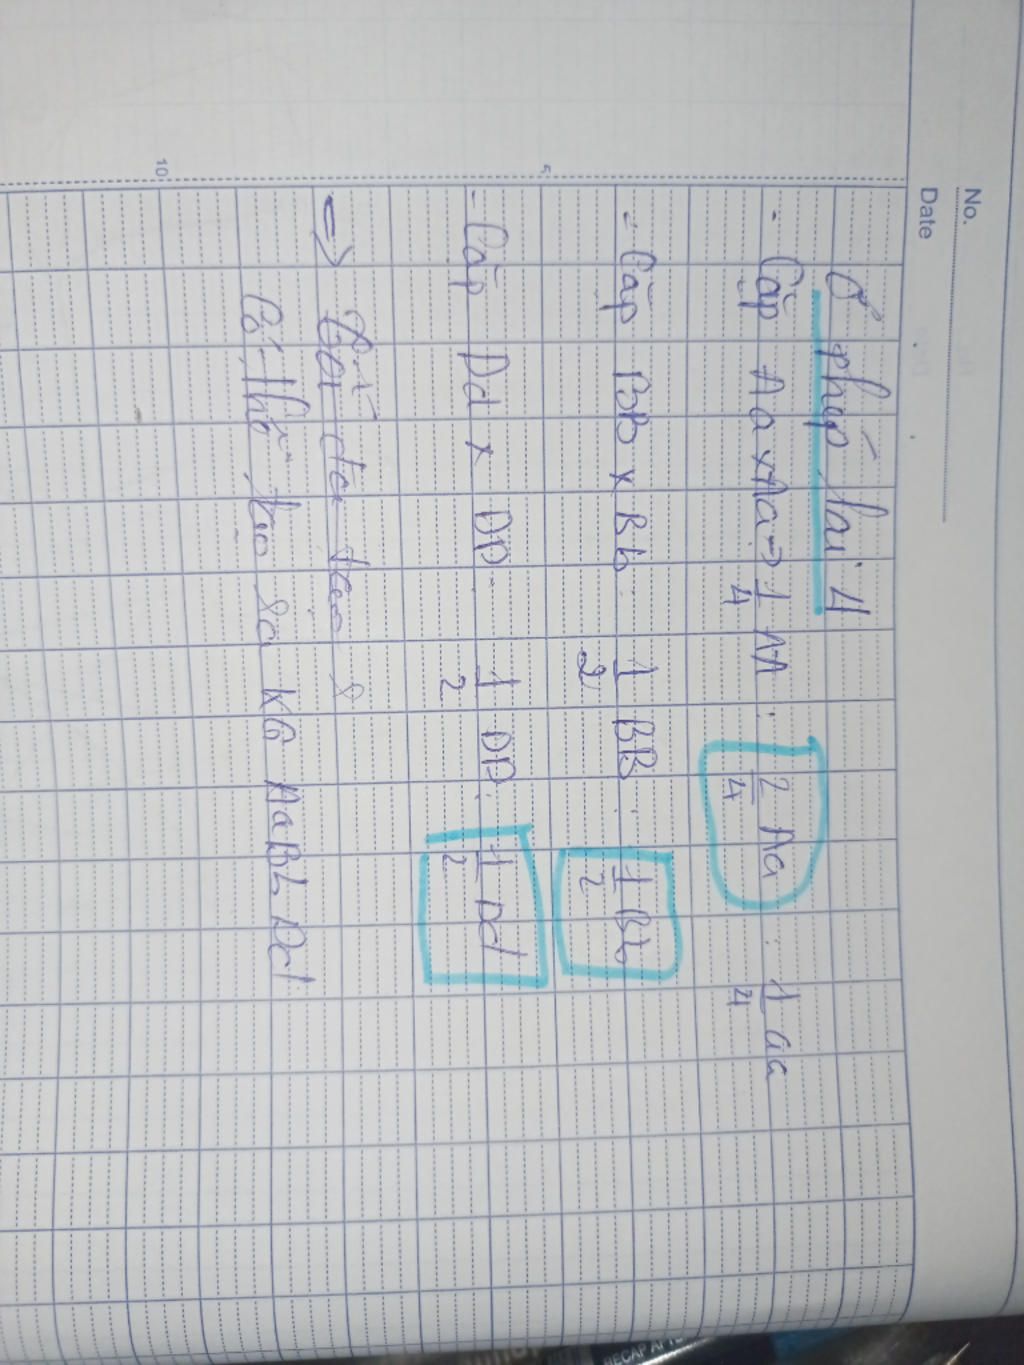 No.
Date
Ở phép lai 4
- Cặp Aa x Aa => 1/4 AA : 2/4 Aa : 1/4 aa
- Cặp BB x Bb : 1/2 BB : 1/2 Bb
5
- Cặp Dd x DD : 1/2 DD : 1/2 Dd
=> đa tạo
Có thể tạo ra KG AaBbDd
10
RECAP AF